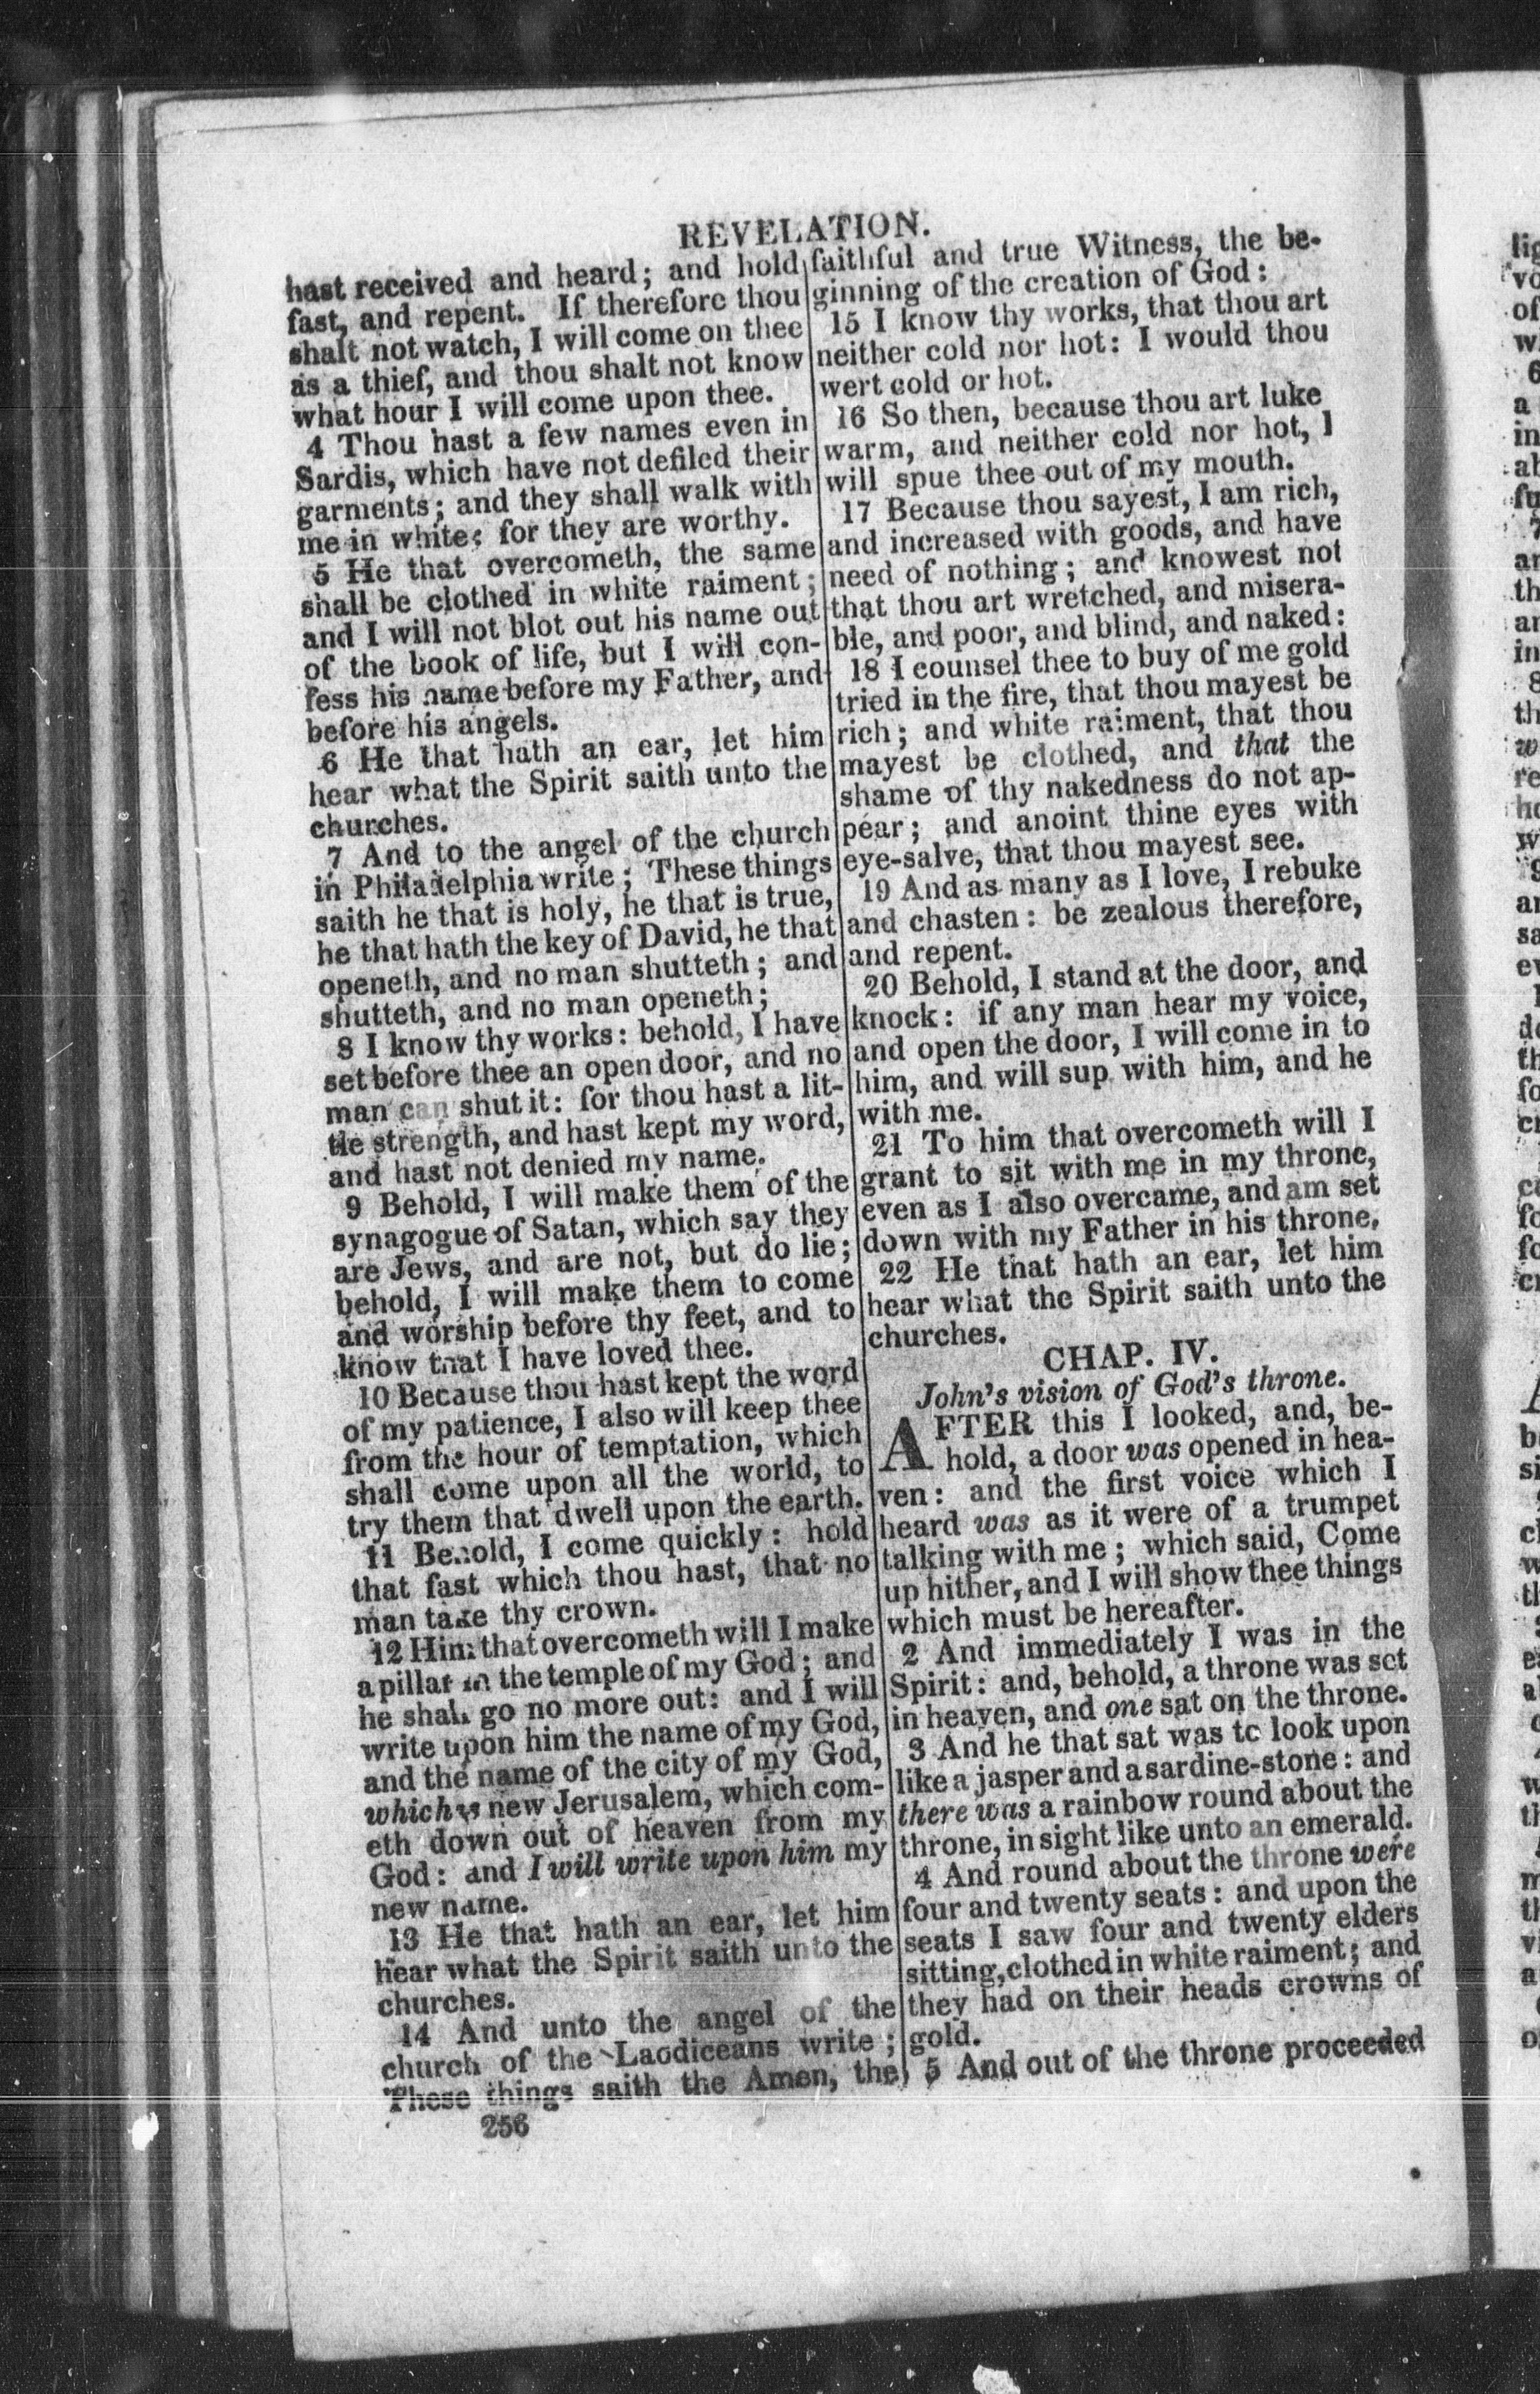 REVELATION.
hast received and heard; and hold
fast, and repent. If therefore thou
shalt not watch, I will come on thee
as a thief, and thou shalt not know
what hour I will come upon thee.
4 Thou hast a few names even in
Sardis, which have not defiled their
garments; and they shall walk with
me in white: for they are worthy.
5 He that overcometh, the same
shall be clothed in white raiment;
and I will not blot out his name out
of the book of life, but I will con-
fess his name before my Father, and
before his angels.
6 He that hath an ear, let him
hear what the Spirit saith unto the
churches.
7 And to the angel of the church
in Philadelphia write; These things
saith he that is holy, he that is true,
he that hath the key of David, he that
openeth, and no man shutteth; and
shutteth, and no man openeth;
8 I know thy works: behold, I have
set before thee an open door, and no
man can shut it: for thou hast a lit-
tle strength, and hast kept my word,
and hast not denied my name.
9 Behold, I will make them of the
synagogue of Satan, which say they
are Jews, and are not, but do lie;
behold, I will make them to come
and worship before thy feet, and to
know that I have loved thee.
10 Because thou hast kept the word
of my patience, I also will keep thee
from the hour of temptation, which
shall come upon all the world, to
try them that dwell upon the earth.
11 Behold, I come quickly: hold
that fast which thou hast, that no
man take thy crown.
12 Him that overcometh will I make
a pillar in the temple of my God; and
he shall go no more out: and I will
write upon him the name of my God,
and the name of the city of my God,
which is new Jerusalem, which com-
eth down out of heaven from my
God: and I will write upon him my
new name.
13 He that hath an ear, let him
hear what the Spirit saith unto the
churches.
14 And unto the angel of the
church of the Laodiceans write;
These things saith the Amen, the
256
faithful and true Witness, the be-
ginning of the creation of God:
15 I know thy works, that thou art
neither cold nor hot: I would thou
wert cold or hot.
16 So then, because thou art luke
warm, and neither cold nor hot, I
will spue thee out of my mouth.
17 Because thou sayest, I am rich,
and increased with goods, and have
need of nothing; and knowest not
that thou art wretched, and misera-
ble, and poor, and blind, and naked:
18 I counsel thee to buy of me gold
tried in the fire, that thou mayest be
rich; and white raiment, that thou
mayest be clothed, and that the
shame of thy nakedness do not ap-
pear; and anoint thine eyes with
eye-salve, that thou mayest see.
19 And as many as I love, I rebuke
and chasten: be zealous therefore,
and repent.
20 Behold, I stand at the door, and
knock: if any man hear my voice,
and open the door, I will come in to
him, and will sup with him, and he
with me.
21 To him that overcometh will I
grant to sit with me in my throne,
even as I also overcame, and am set
down with my Father in his throne.
22 He that hath an ear, let him
hear what the Spirit saith unto the
churches.
CHAP. IV.
John's vision of God's throne.
AFTER this I looked, and, be-
hold, a door was opened in hea-
ven: and the first voice which I
heard was as it were of a trumpet
talking with me; which said, Come
up hither, and I will show thee things
which must be hereafter.
2 And immediately I was in the
Spirit: and, behold, a throne was set
in heaven, and one sat on the throne.
3 And he that sat was to look upon
like a jasper and a sardine-stone: and
there was a rainbow round about the
throne, in sight like unto an emerald.
4 And round about the throne were
four and twenty seats: and upon the
seats I saw four and twenty elders
sitting, clothed in white raiment; and
they had on their heads crowns of
gold.
5 And out of the throne proceeded